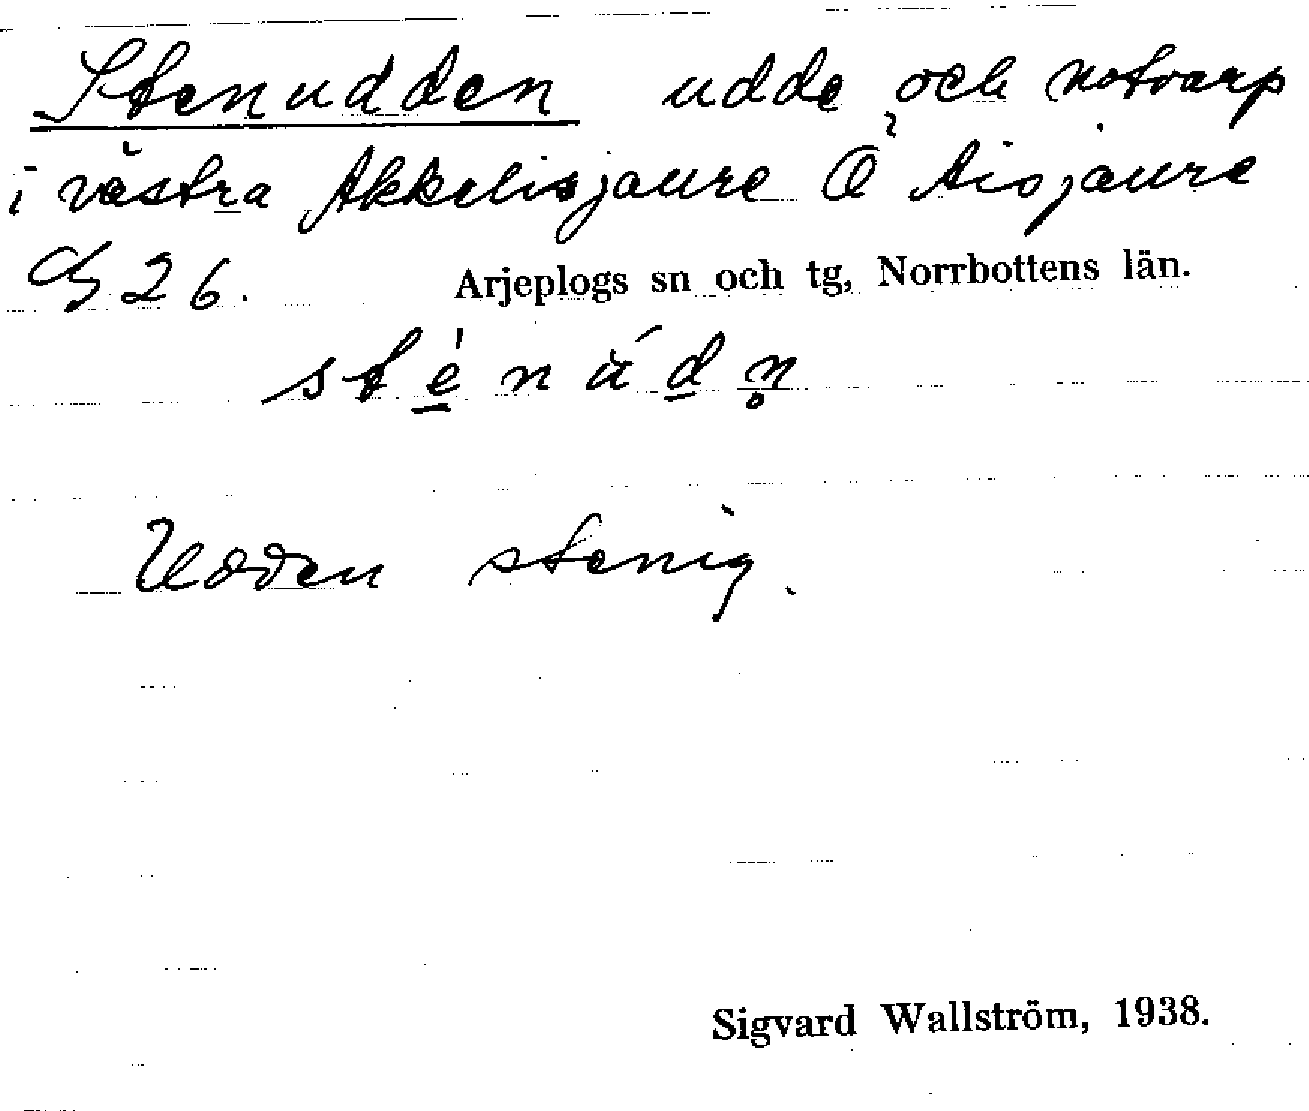 Stenudden udde och notvarp
i västra Akkelisjaure Ö Aisjaure
G 26.
Arjeplogs sn och tg, Norrbottens län.
Udden stenig.
Sigvard Wallström, 1938.